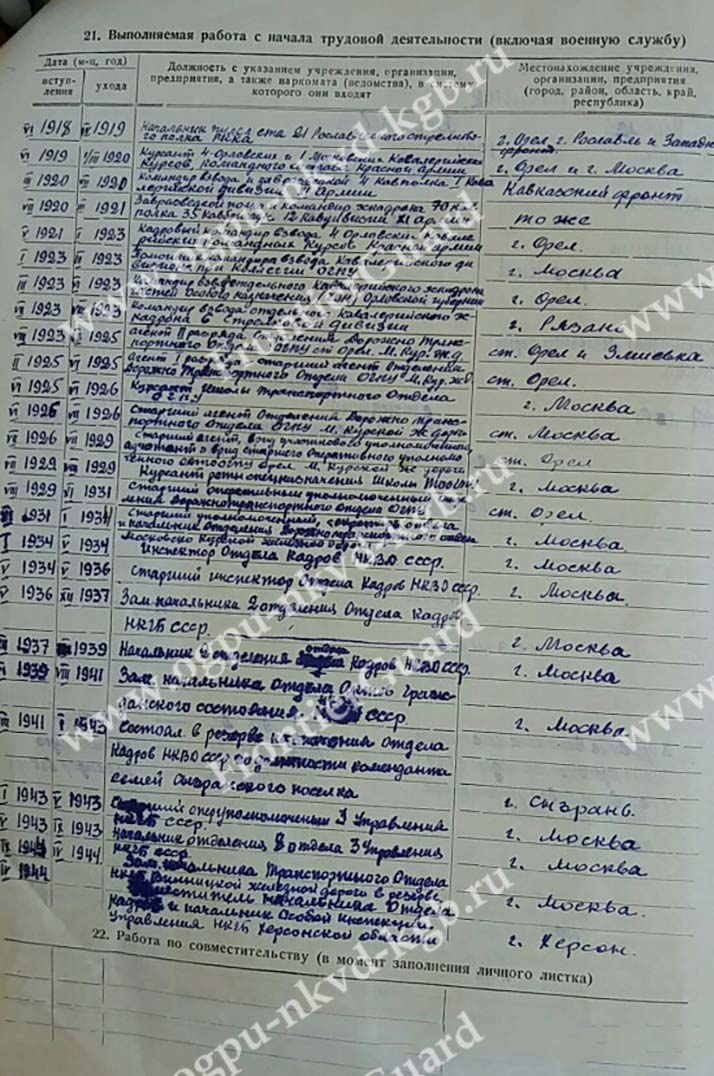 21. Выполняемая работа с начала трудовой деятельности (включая военную службу)
Дата (м-ц, год)
вступ-
ления
ухода
Должность с указанием учреждения, организации,
предприятия, а также наркомата (ведомства), в систему
которого они входят
Местонахождение учреждения,
организации, предприятия
(город, район, область, край,
республика)
VI 1918 1919 Начальник 21
го полка РККА г. Орел г. Рославль и Западн
фронт.
1919 1920 Курсант 4 Орловских и 1 Московских Кавалерийских
Курсов командного состава Красной армии г. Орел и г. Москва
1920 1920 Командир взвода 4 Кавполка 1 Кава
лерийской дивизии армии Кавказский фронт
1920 1921 командир эскадрона 70 кав
полка 35 Кавбригады 12 Кавдивизии XI армии то же
V 1921 I 1923 Кадровый командир взвода 4 Орловских Кавале
рийских Командных Курсов Красной армии г. Орел.
1923 1923 Помощник командира взвода Кавалерийского ди
визиона при Коллегии ОГПУ г. Москва
1923 1923 Командир взвода отдельного Кавалерийского эскадрона
частей Особого назначения Орловской губернии г. Орел.
1923 1923 Командир взвода отдельного Кавалерийского эс
кадрона Стрелковой Дивизии г. Рязань
1923 1925 агент II разряда Отделения Дорожно Транс
портного Отдела ОГПУ ст Орел. М. Кур. ж.д. ст. Орел и Змиевка
1925 1925 агент I разряда - старший агент Отделения
Дорожно Транспортного Отдела ОГПУ М. Кур. ж.д. ст. Орел.
1925 1926 Курсант Школы Транспортного Отдела
ОГПУ г. Москва
1926 1926 Старший агент Отделения Дорожно Транс
портного Отдела ОГПУ М. Курской ж дороги ст. Москва
1926 1929 Старший агент, врид участкового уполномоченного,
врид старшего Оперативного уполномо
ченного Орел. М. Курской ж дороги ст. Орел
1929 1929 Курсант роты спецназначения Школы г. Москва
1929 VI 1931 Старший Оперативный уполномоченный отделе
ния Дорожнотранспортного отдела ОГПУ ст. Орел.
1931 I 1934 Старший уполномоченный, секретарь отдела
и начальник Отделения Дорожнотранспортного отдела
Московско Курской железной дороги г. Москва.
I 1934 V 1934 Инспектор Отдела Кадров НКВД СССР. г. Москва
V 1934 V 1936 Старший инспектор Отдела Кадров НКВД СССР. г. Москва.
V 1936 XII 1937 Зам. начальника 2 отделения Отдела Кадров
НКГБ СССР. г. Москва
1937 1939 Начальник 2 отделения отдела Кадров НКВД СССР. г. Москва
1939 VIII 1941 Зам. начальника Отдела Актов Граж-
данского состояния СССР. г. Москва.
1941 I 1943 Состоял в резерве назначения Отдела
Кадров НКВД СССР в должности коменданта
семей поселка г. Сызрань.
I 1943 V 1943 Старший оперуполномоченный 3 Управления
НКГБ СССР. г. Москва
V 1943 IX 1943 Начальник отделения 8 отдела 3 Управления
НКГБ СССР. г. Москва
IX IV 1944 Зам. начальника Транспортного Отдела
НКГБ Винницкой железной дороги в резерве г. Москва.
IV 1944 Заместитель начальника Отдела
Кадров и начальник Особой инспекции
Управления НКГБ Херсонской области г. Херсон.
22. Работа по совместительству (в момент заполнения личного листка)
www.ogpu-nkvd-kgb.ru
FrontierGuard